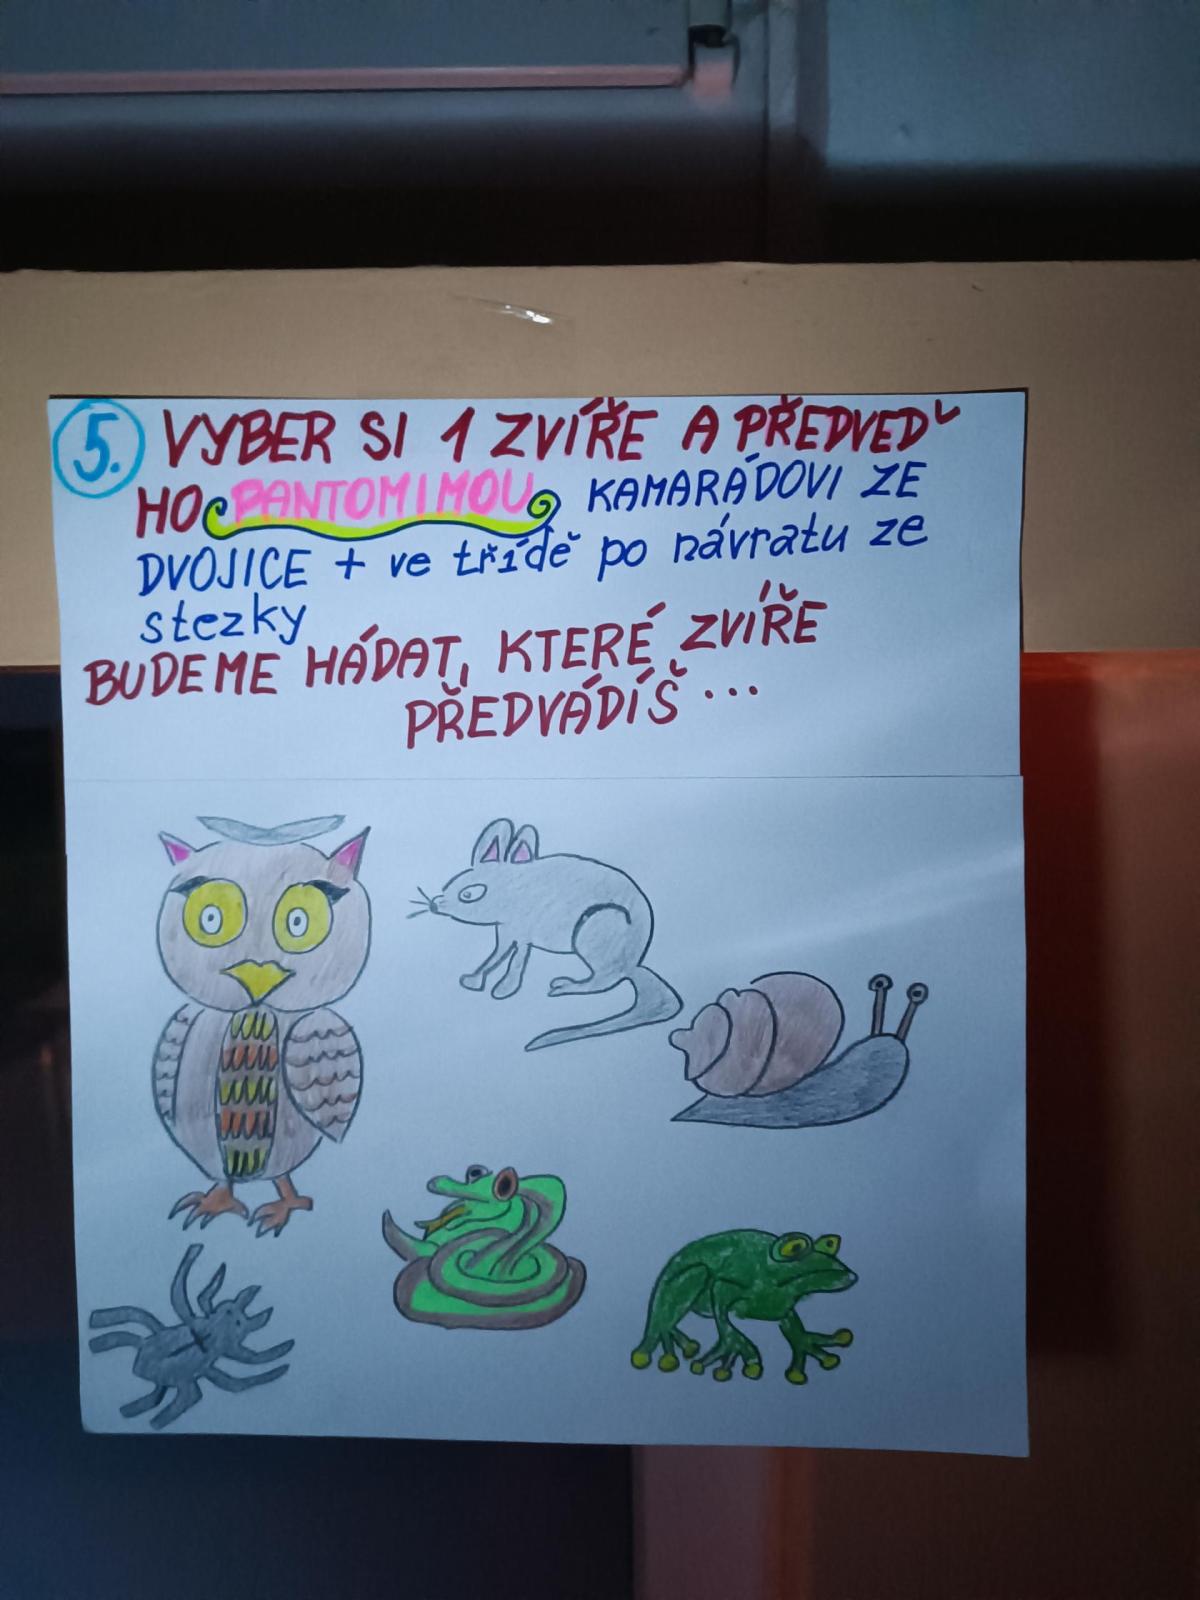 5. VYBER SI 1 ZVÍŘE A PŘEDVEĎ
HO PANTOMIMOU KAMARÁDOVI ZE
DVOJICE + ve třídě po návratu ze
stezky
BUDEME HÁDAT, KTERÉ ZVÍŘE
PŘEDVÁDÍŠ...